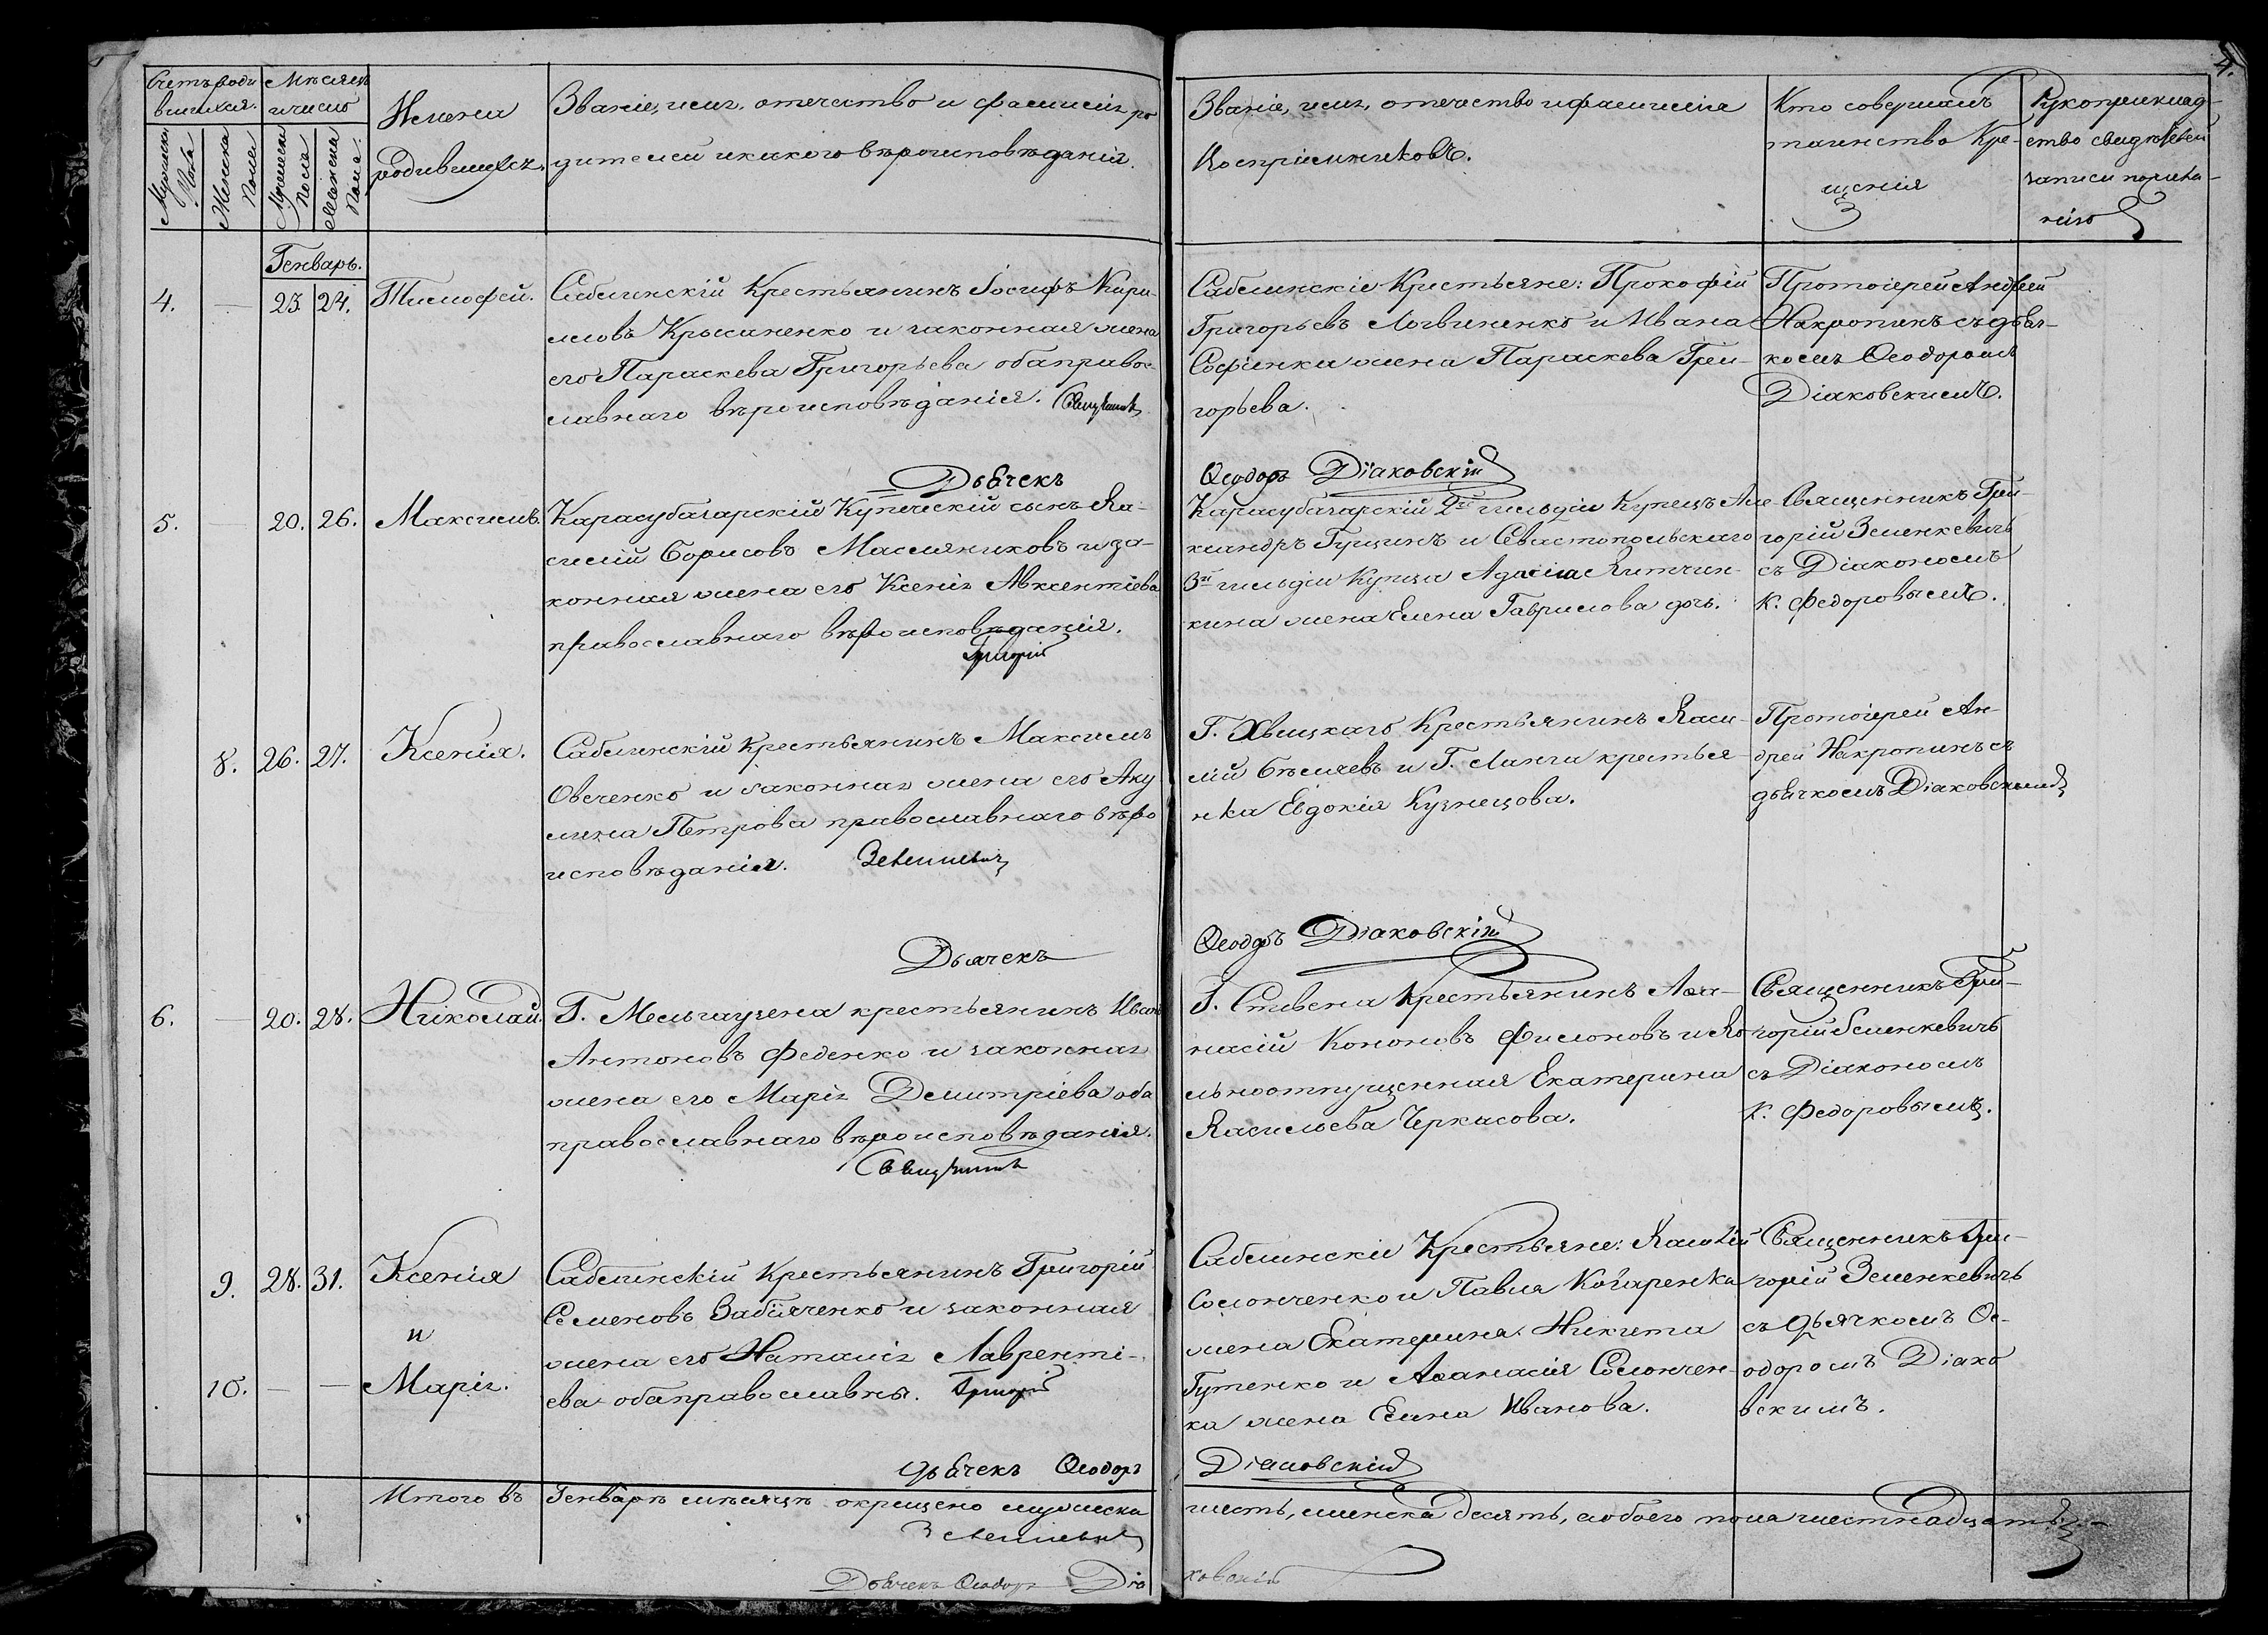 4.
Счетъ роди
вшихся.
Мѣсяцъ
и число
Мужеска
Пола
Женска
Пола
Мужеска
Пола
Женска
Пола.
Имена
родившихся.
Званіе, имя, отечество и фамилія ро
дителей и какого вѣроисповѣданія.
Званіе, имя, отечество и фамилія
Воспріемниковъ.
Кто совершалъ
таинство Кре-
щенія
Рукоприклад-
ство свидѣтелей
записи по жела-
нію
Генварь.
4. — 23. 24. Тимофей.
Саблинскій Крестьянинъ Іосифъ Кири-
ловъ Крысаненко и законная жена
его Параскева Григорьева оба правос-
лавнаго вѣроисповѣданія. Священникъ
Саблинскіе Крестьяне: Прокофій
Григорьевъ Логвиненко и Ивана
Софіенки жена Параскева Гри-
горьева.
Протоіерей Андрей
Накропинъ съ дьяч-
комъ Ѳеодоромъ
Діаковскимъ.
Дьячекъ Ѳеодоръ Діаковскій
5. — 20. 26. Максимъ.
Карасубазарскій Купеческій сынъ Ва-
силій Борисовъ Масляниковъ и за-
конная жена его Ксенія Авксентіева
православнаго вѣроисповѣданія.
Григорій
Карасубазарскій 2й гильдіи Купецъ Але-
ксандръ Гущинъ и Севастопольскаго
3й гильдіи Купца Адама
кина жена Елена Гаврилова дочь.
Священникъ Гри-
горій Зеленкевичъ
съ Діакономъ
К. Федоровымъ.
8. 26. 27. Ксенія.
Саблинскій Крестьянинъ Максимъ
Овченко и законная жена его Аку
лина Петрова православнаго вѣро
исповѣданія. Зеленкевичъ
Г. Хвицкаго Крестьянинъ Васи-
лій Бѣляевъ и Г. Ланги крестья-
нка Евдокія Кузнецова.
Протоіерей Ан-
дрей Накропинъ съ
дьячкомъ Діаковскимъ
Дьячекъ Ѳеодоръ Діаковскій
6. — 20. 28. Николай.
Г. Мельгаузена крестьянинъ Иванъ
Антоновъ Феденко и законная
жена его Марія Демитріева оба
православнаго вѣроисповѣданія.
Священникъ
Г. Стивена Крестьянинъ Аѳа-
насій Кононовъ Филоновъ и Во
льноотпущенная Екатерина
Васильева Черкасова.
Священникъ Гри-
горій Зеленкевичъ
съ Діакономъ
К. Федоровымъ.
9. 28. 31. Ксенія
и
10. — — Марія.
Саблинскій Крестьянинъ Григорій
Семеновъ Забіяченко и законная
жена его Наталія Лавренті-
ева оба православны. Григорій
Саблинскіе Крестьяне: Василій
Солонченко и Павла Кочаренка
жена Екатерина. Никита
Гутенко и Аѳанасія Солончен-
ка жена Елена Иванова.
Священникъ Гри-
горій Зеленкевичъ
съ дьячкомъ Ѳе-
одоромъ Діако
вскимъ.
Дьячекъ Ѳеодоръ Діаковскій
Итого въ Генварѣ мѣсяцѣ окрещено мужеска шесть, женска десять, а обоего пола шестнадцать.
Зеленкевичъ
Дьячекъ Ѳеодоръ Діаковскій